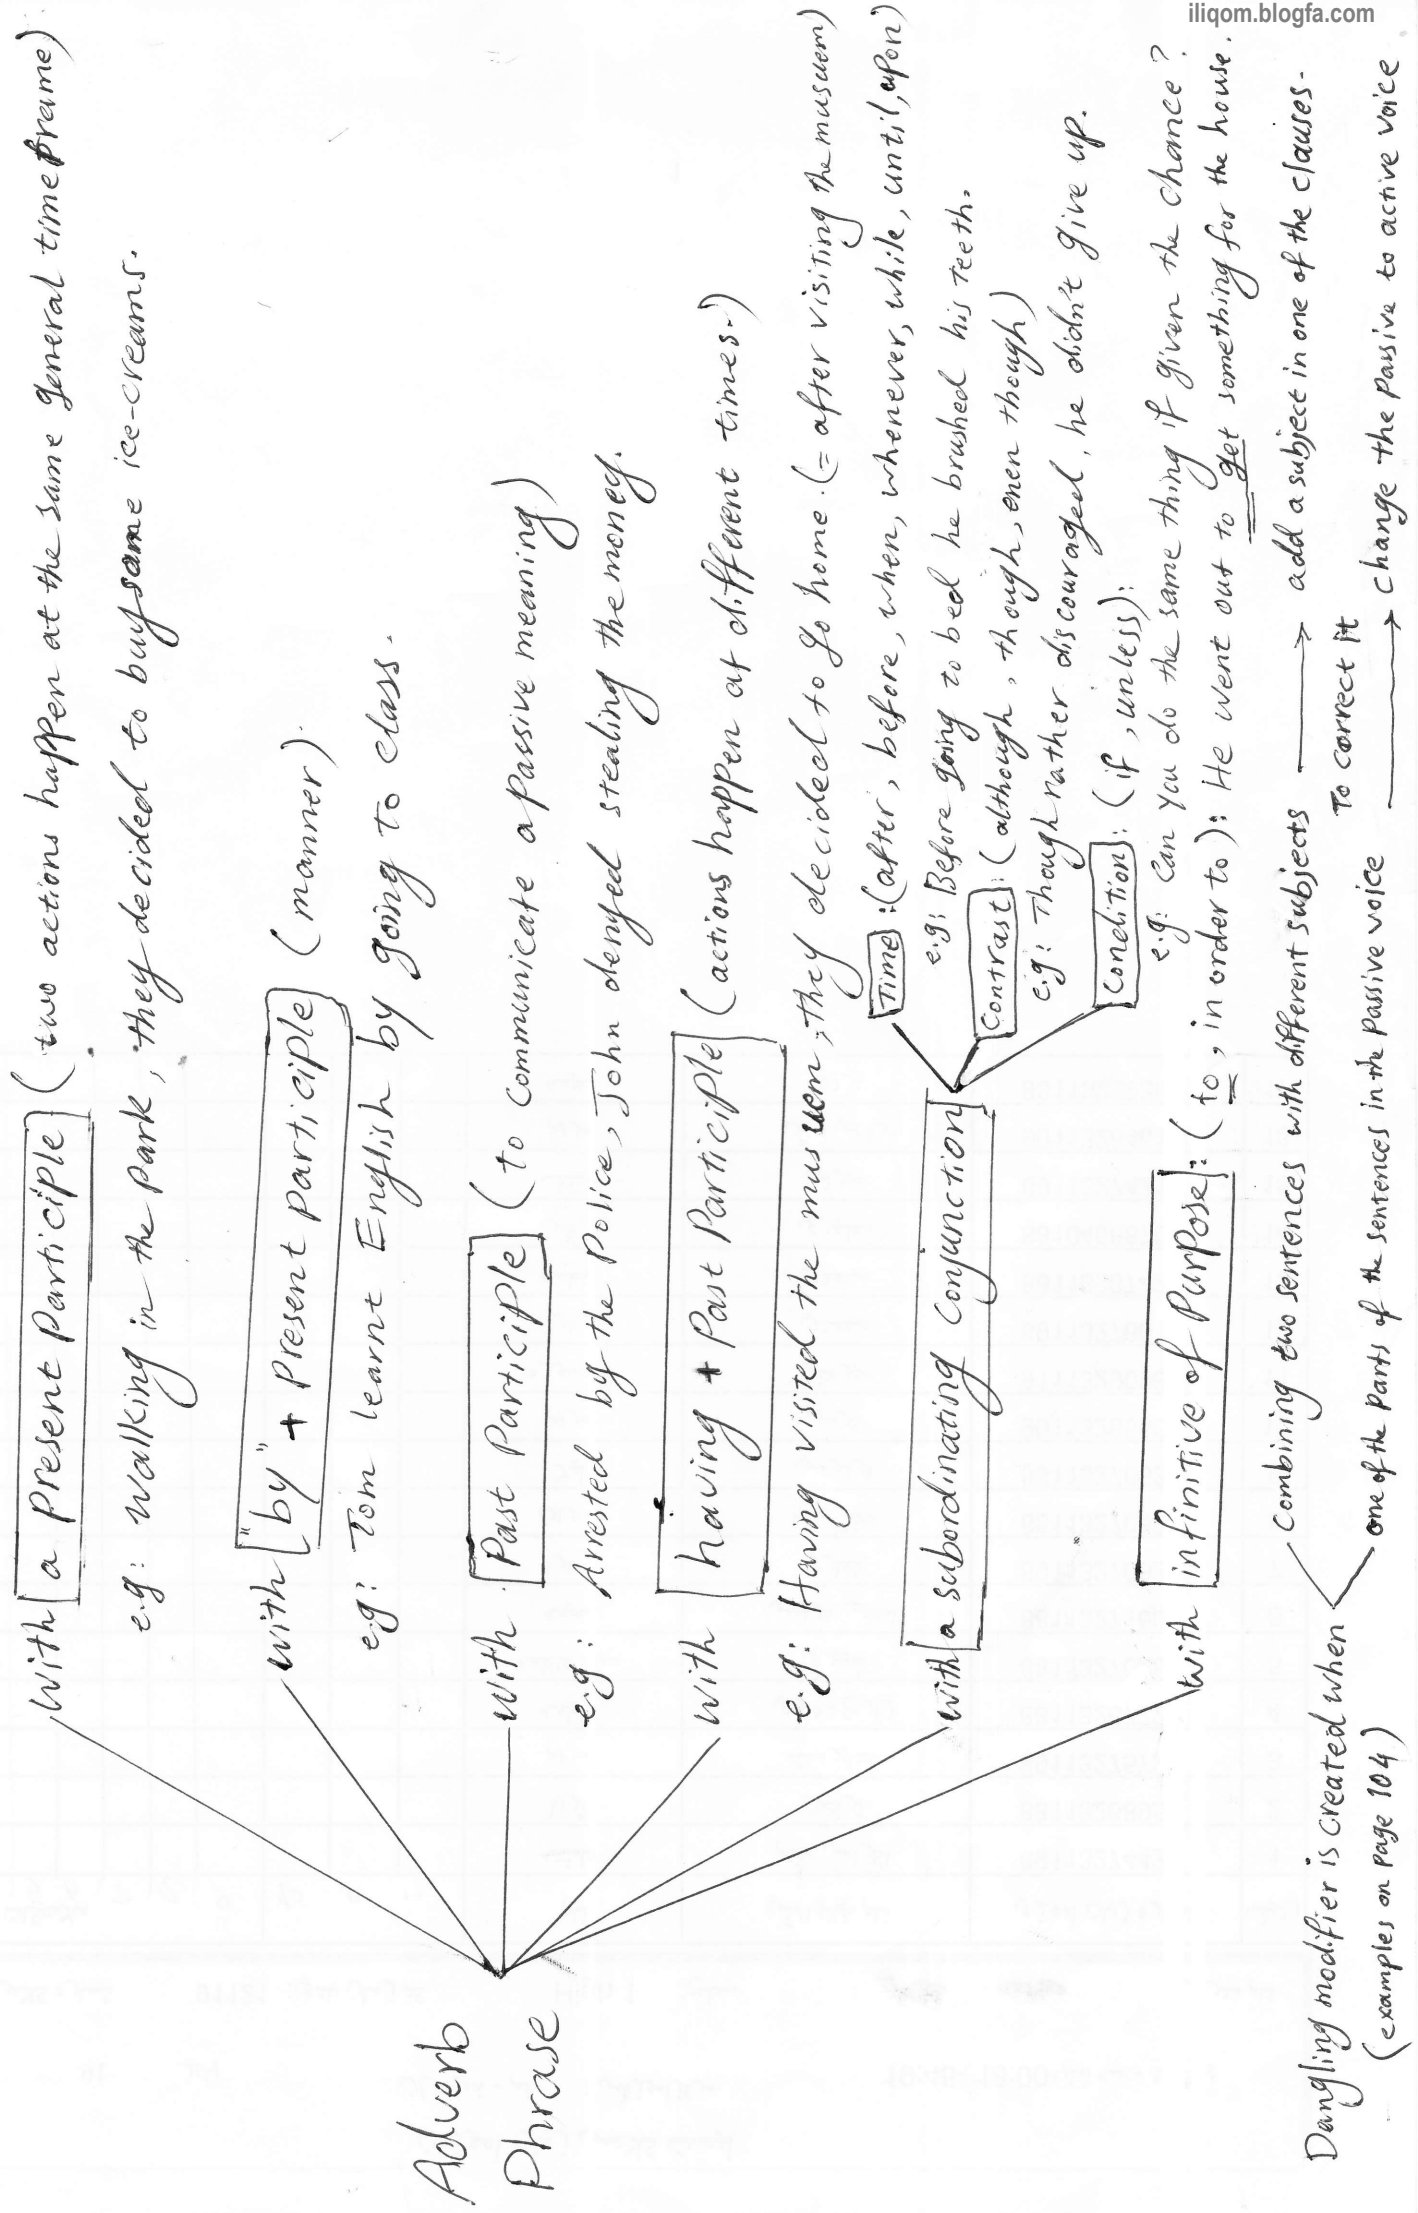 iliqom.blogfa.com
Adverb
Phrase
with a present participle (two actions happen at the same general time frame)
e.g: walking in the park, they decided to buy some ice-creams.
with "by" + present participle (manner)
e.g: Tom learnt English by going to class.
with Past Participle (to communicate a passive meaning)
e.g: Arrested by the police, John denyed stealing the money.
with having + Past Participle (actions happen at different times.)
e.g: Having visited the musuem, they decided to go home. (= after visiting the musuem)
with a subordinating conjunction
Time: (after, before, when, whenever, while, until, upon)
e.g: Before going to bed he brushed his teeth.
Contrast: (although, though, even though)
e.g: Though rather discouraged, he didn't give up.
Condition: (if, unless):
e.g: Can you do the same thing if given the chance?
with infinitive of Purpose: (to, in order to): He went out to get something for the house.
Dangling modifier is created when
(examples on page 104)
combining two sentences with different subjects → add a subject in one of the clauses.
To correct it
one of the parts of the sentences in the passive voice → change the passive to active voice